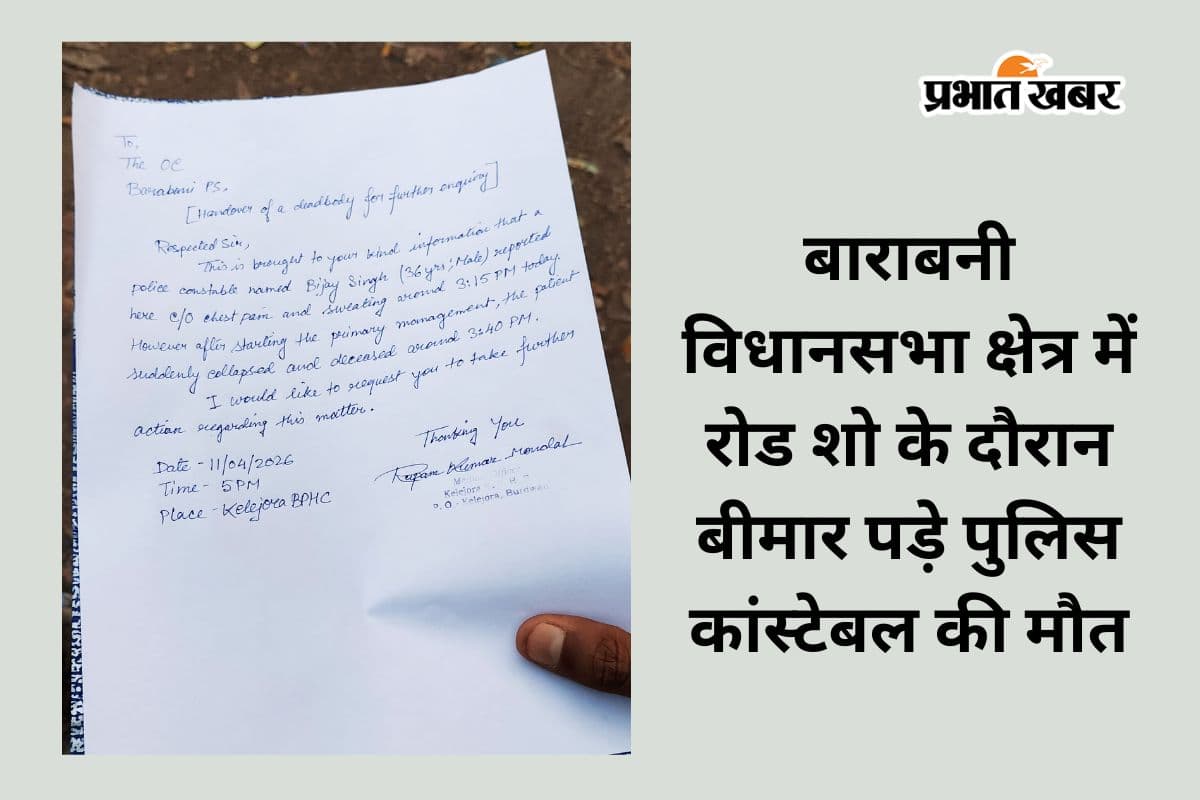 To,
The OC
Barabani PS.
[Handover of a deadbody for further enquiry]
Respected Sir,
This is brought to your kind information that a
police constable named Bijay Singh (36yrs; Male) reported
here c/o chest pain and sweating around 3:15 PM today.
However after starting the primary management, the patient
suddenly collapsed and deceased around 3:40 PM.
I would like to request you to take further
action regarding this matter.
Thanking You
Rupam Kumar Mondal
Kelejora
P.O.- Kelejora, Burdwan
Date - 11/04/2026
Time - 5PM
Place - Kelejora BPHC
प्रभात खबर
बाराबनी
विधानसभा क्षेत्र में
रोड शो के दौरान
बीमार पड़े पुलिस
कांस्टेबल की मौत